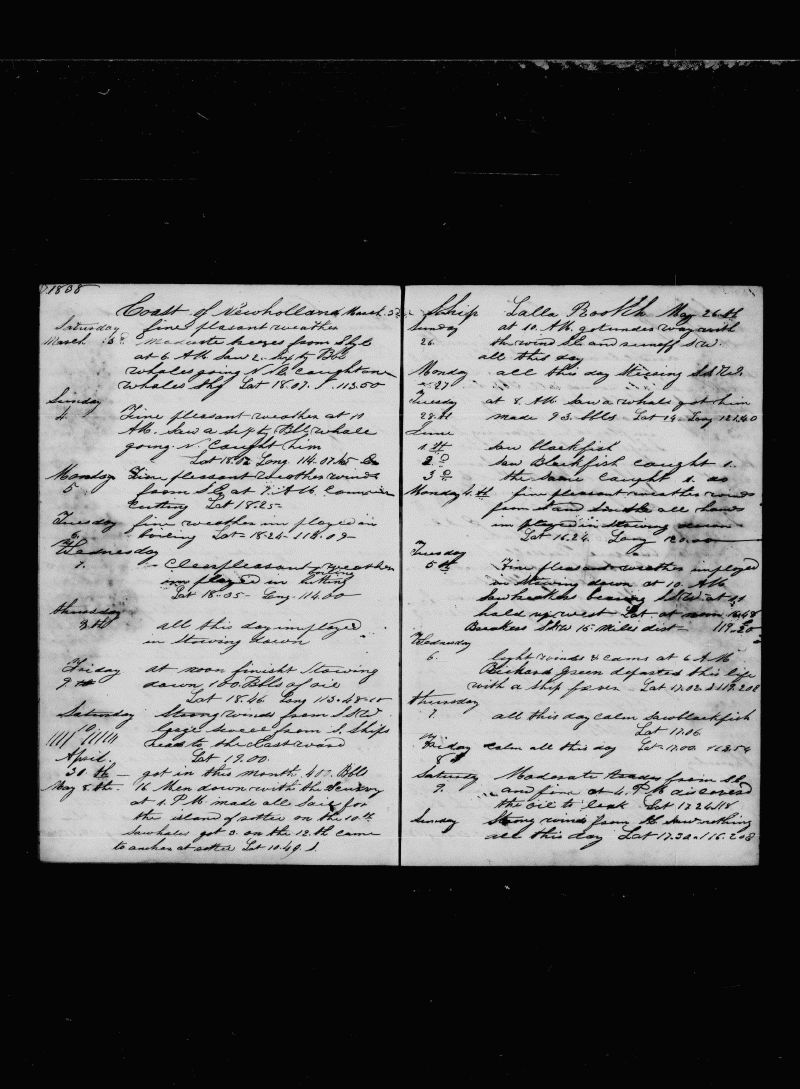 1838
Coast of Newholland March
Saturday fine pleasant weather
March 3 Moderate breezes from S by E
at 6 AM Saw 2 Sixty Bbl
whales going N E Caught one
whales thg Lat 18.07. 113.50
Sunday
4 Fine pleasant weather at 10
AM. Saw a Sixty Bbl whale
going N. Caught him
Lat 18.52 Long 114.07.45
Monday Fine pleasant weather winds
5 from S E at 7. AM. Commence
Cutting Lat 18.25
Tuesday fine weather im ployed in
6 boiling Lat 18.24 114.09
Wednesday
7. Clear pleasant weather
im ployed in boiling
Lat 18.35 Long. 114.00
Thursday
8 th all this day imployed
in Stowing down
Friday at noon finisht Stowing
9 th down 100 Bbls of oil
Lat 18.46 Long 113.48
Saturday Strong winds from S S W
10 large swell from S. Ships
head to the Eastward
April. Lat 19.00
30 th got in this month 400 Bbls
May 8 th 16 Men down with the Scurvy
at 1. P M made all Sail for
the island of rottee on the 10th
saw whales got 3 on the 12 th came
to anchor at rottee Lat 10.49 S
Ship Lalla Rookh May 26 th
Sunday at 10. AM. got under way with
26 the wind SE and run off S W.
all this day
Monday all this day Stearing S S W
27
Tuesday at 8. AM Saw a whale got him
28 th made 93 bbls Lat 14 Long 121.40
June
1 st Saw blackfish
2 D Saw Blackfish caught 1.
3 D the Same Caught 1. do
Monday 4 th fine pleasant weather winds
from S and all hands
im ployed in Stowing down
Lat 16.24 Long 120.00
Tuesday
5 th Fine pleasant weather imployed
in Stowing down at 10. AM
Saw breakers bearing S S W at
held up west Lat at noon 16.48
Breakers S S W 15 Miles dist 119.20
Wednesday
6. light winds & cams at 6 A M
Richard Green departed this life
with a ship fever Lat 17.02
Thursday
7 all this day calm Saw blackfish
Lat 17.06
Friday calm all this day Lat 17.00
8
Saturday Moderate breezes from S E
9. and fine at 4. P M discovered
the oil to leak Lat 17.24
Sunday Strong winds from SE Saw nothing
all this day Lat 17.32